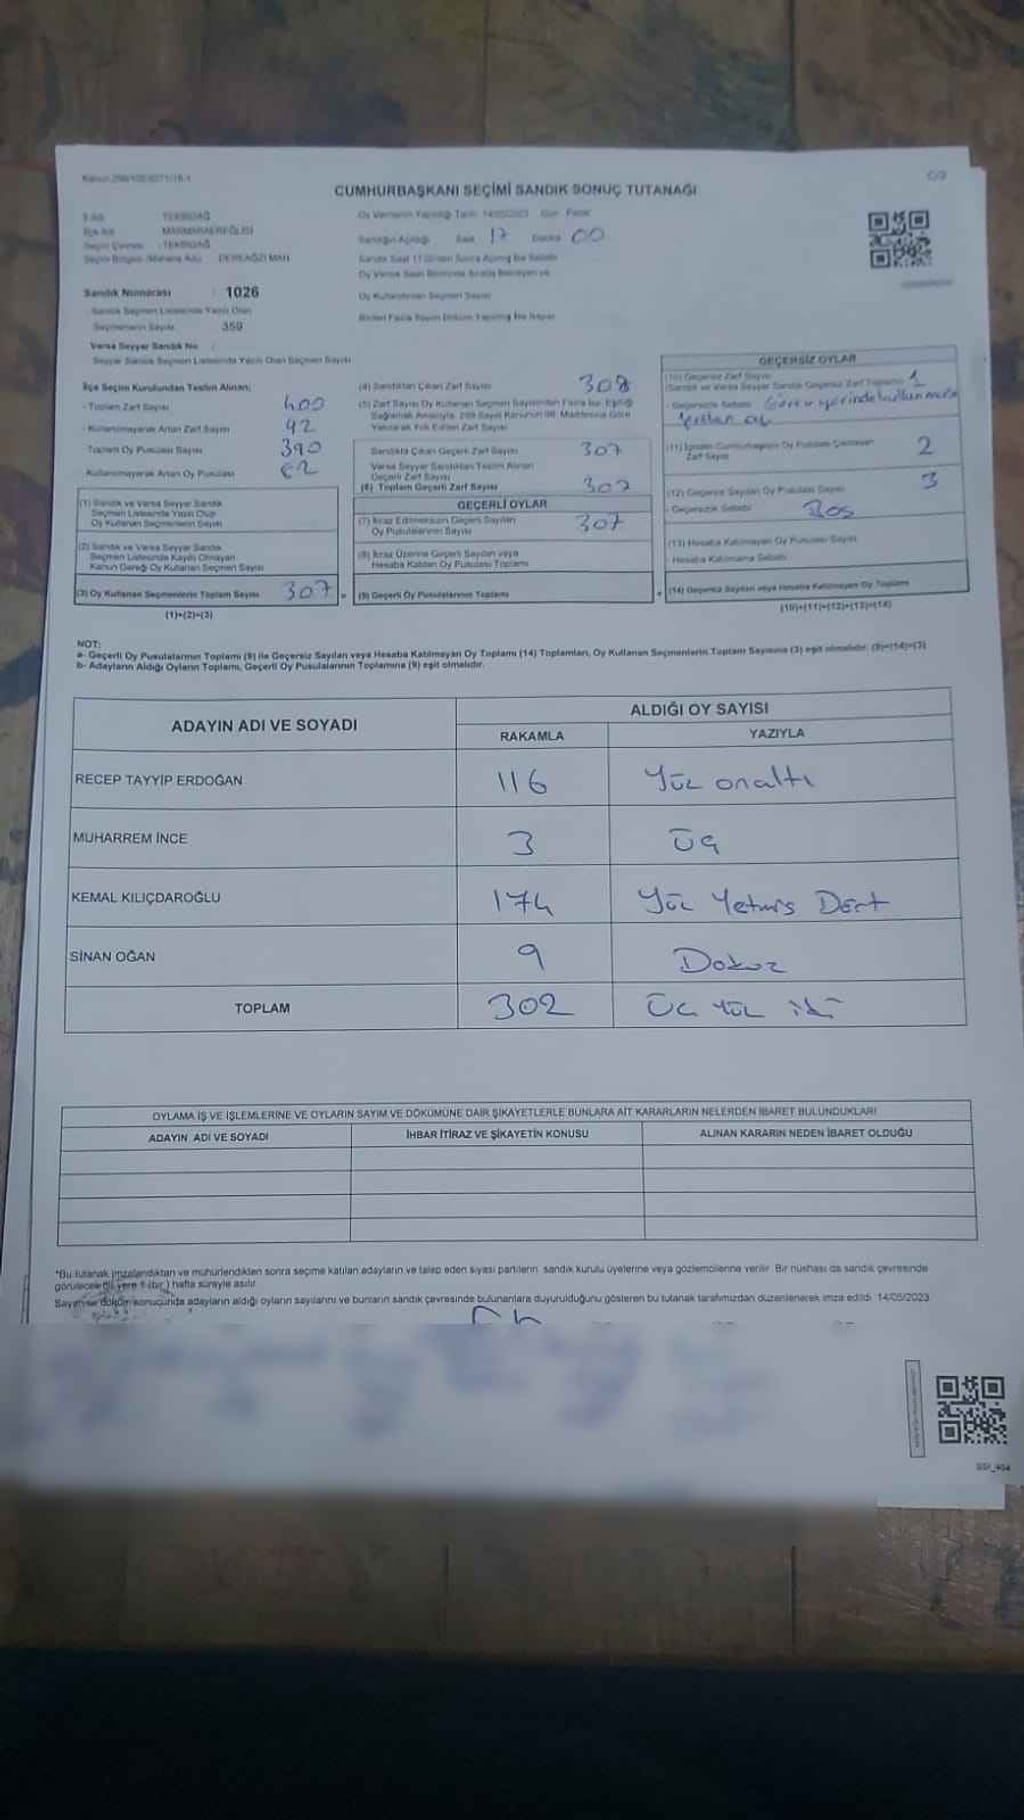 CUMHURBAŞKANI SEÇİMİ SANDIK SONUÇ TUTANAĞI
İli Adı TEKİRDAĞ
İlçe Adı MARMARAEREĞLİSİ
Seçim Çevresi TEKİRDAĞ
Seçim Bölgesi /Mahalle Adı DEREAĞZI MAH.
Oy Vermenin Yapıldığı Tarih: 14/05/2023 Gün: Pazar
Sandığın Açılışı Saat 17 Dakika 00
Sandık Numarası : 1026
Sandık Seçmen Listesinde Yazılı Olan
Seçmenlerin Sayısı 359
Varsa Seyyar Sandık No :
Seyyar Sandık Seçmen Listesinde Yazılı Olan Seçmen Sayısı
Oy Kullandırılan Seçmen Sayısı
Birden Fazla Sayım Döküm Yapılmış İse Sayısı
İlçe Seçim Kurulundan Teslim Alınan;
- Toplam Zarf Sayısı 400
- Kullanılmayarak Artan Zarf Sayısı 92
- Toplam Oy Pusulası Sayısı 390
- Kullanılmayarak Artan Oy Pusulası
(1) Sandık ve Varsa Seyyar Sandık
Seçmen Listesinde Yazılı Olup
Oy Kullanan Seçmenlerin Sayısı
(2) Sandık ve Varsa Seyyar Sandık
Seçmen Listesinde Kayıtlı Olmayan
Kanun Gereği Oy Kullanan Seçmen Sayısı
(3) Oy Kullanan Seçmenlerin Toplam Sayısı 307
(1)+(2)=(3)
(4) Sandıktan Çıkan Zarf Sayısı 308
(5) Zarf Sayısı Oy Kullanan Seçmen Sayısından Fazla İse, Eşitliği
Sağlamak Amacıyla, 298 Sayılı Kanunun 98. Maddesine Göre
Yakılarak Yok Edilen Zarf Sayısı
Sandıkta Çıkan Geçerli Zarf Sayısı 307
Varsa Seyyar Sandıktan Teslim Alınan
Geçerli Zarf Sayısı
(6) Toplam Geçerli Zarf Sayısı 307
GEÇERLİ OYLAR
(7) İtiraz Edilmeksizin Geçerli Sayılan
Oy Pusulalarının Sayısı 307
(8) İtiraz Üzerine Geçerli Sayılan veya
Hesaba Katılan Oy Pusulası Toplamı
(9) Geçerli Oy Pusulalarının Toplamı
GEÇERSİZ OYLAR
(10) Geçersiz Zarf Sayısı
(Sandık ve Varsa Seyyar Sandık Geçersiz Zarf Toplamı) 1
- Geçersizlik Sebebi
(11) İçinden Cumhurbaşkanı Oy Pusulası Çıkmayan
Zarf Sayısı 2
(12) Geçersiz Sayılan Oy Pusulası Sayısı 3
- Geçersizlik Sebebi Boş
(13) Hesaba Katılmayan Oy Pusulası Sayısı
- Hesaba Katılmama Sebebi
(14) Geçersiz Sayılan veya Hesaba Katılmayan Oy Toplamı
(10)+(11)+(12)+(13)=(14)
NOT:
a- Geçerli Oy Pusulalarının Toplamı (9) ile Geçersiz Sayılan veya Hesaba Katılmayan Oy Toplamı (14) Toplamları, Oy Kullanan Seçmenlerin Toplam Sayısına (3) eşit olmalıdır. (9)+(14)=(3)
b- Adayların Aldığı Oyların Toplamı, Geçerli Oy Pusulalarının Toplamına (9) eşit olmalıdır.
ADAYIN ADI VE SOYADI ALDIĞI OY SAYISI
RAKAMLA YAZIYLA
RECEP TAYYİP ERDOĞAN 116 Yüz onaltı
MUHARREM İNCE 3 Üç
KEMAL KILIÇDAROĞLU 174 Yüz Yetmiş Dört
SİNAN OĞAN 9 Dokuz
TOPLAM 302 Üç Yüz iki
OYLAMA İŞ VE İŞLEMLERİNE VE OYLARIN SAYIM VE DÖKÜMÜNE DAİR ŞİKAYETLERLE BUNLARA AİT KARARLARIN NELERDEN İBARET BULUNDUKLARI
ADAYIN ADI VE SOYADI İHBAR İTİRAZ VE ŞİKAYETİN KONUSU ALINAN KARARIN NEDEN İBARET OLDUĞU
*Bu tutanak imzalandıktan ve mühürlendikten sonra seçime katılan adayların ve talep eden siyasi partilerin, sandık kurulu üyelerine veya gözlemcilerine verilir. Bir nüshası da sandık çevresinde
görülecek bir yere 1 (bir) hafta süreyle asılır.
Sayım ve döküm sonucunda adayların aldığı oyların sayılarını ve bunların sandık çevresinde bulunanlara duyurulduğunu gösteren bu tutanak tarafımızdan düzenlenerek imza edildi. 14/05/2023